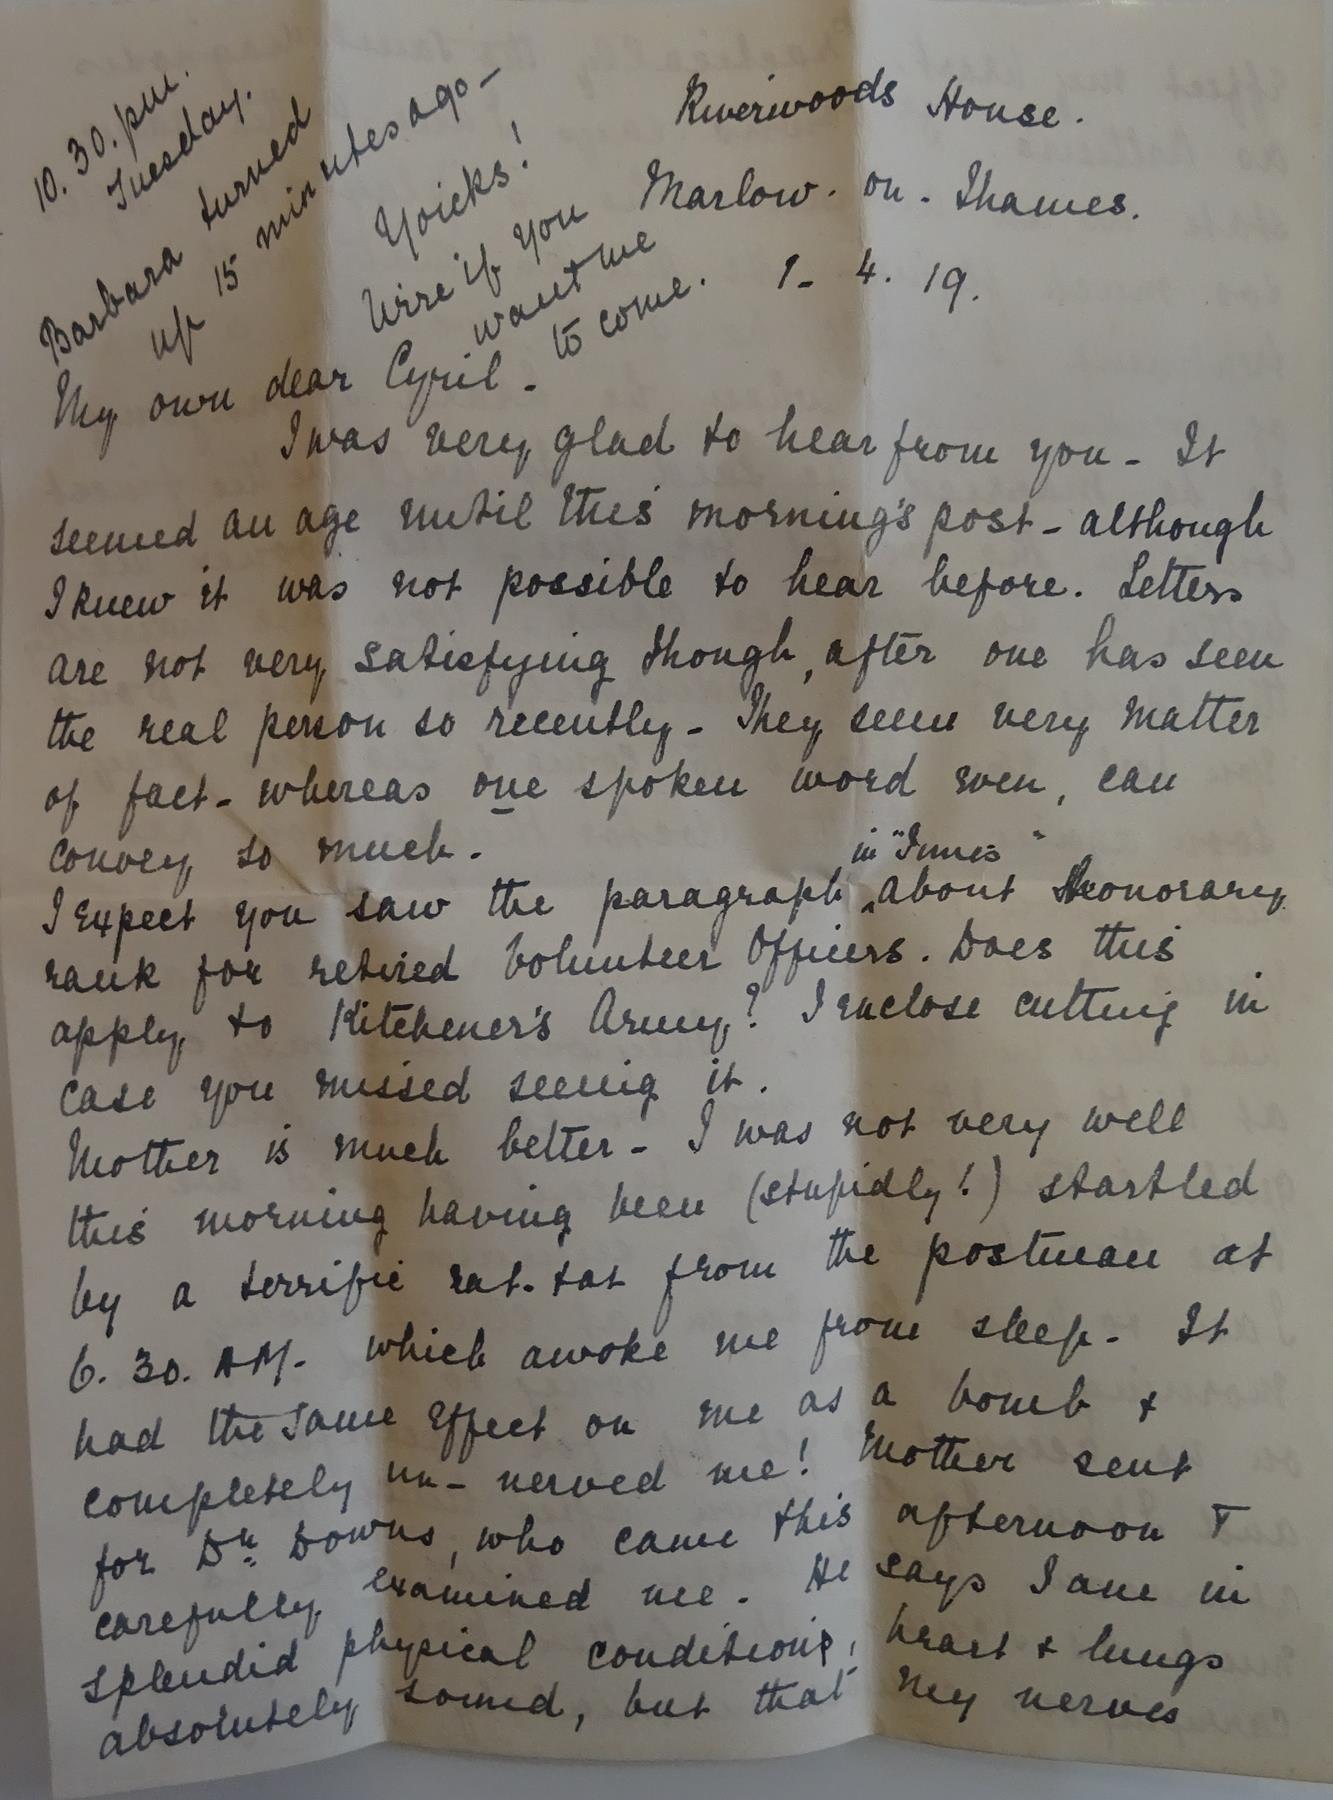 10.30.pm.
Tuesday.
Barbara turned
up 15 minutes ago -
Yoicks!
Wire if you
want me
to come.
Riverwoods House.
Marlow. on. Thames.
1- 4. 19.
My own dear Cyril -
I was very glad to hear from you - It
seemed an age until this morning's post - although
I knew it was not possible to hear before. Letters
are not very satisfying though, after one has seen
the real person so recently - They seem very matter
of fact - whereas one spoken word even, can
convey so much.
in "Times"
I expect you saw the paragraph ‸about Honorary
rank for retired Volunteer Officers. Does this
apply to Kitchener's Army? I enclose cutting in
case you missed seeing it.
Mother is much better - I was not very well
this morning having been (stupidly!) startled
by a terrific rat-tat from the postman at
6. 30. AM. which awoke me from sleep - It
had the same effect on me as a bomb &
completely un-nerved me! Mother sent
for Dr. Downs, who came this afternoon &
carefully examined me. He says I am in
splendid physical condition, heart & lungs
absolutely sound, but that my nerves